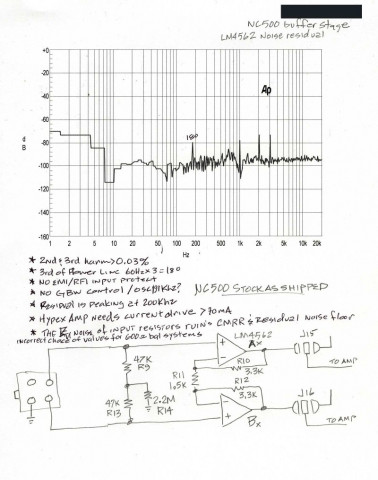 NC500 buffer stage
LM4562 Noise residual
+0
-20
-40
-60
-80
-100
-120
-140
-160
d
B
Ap
180
1 2 5 10 20 50 100 200 500 1k 2k 5k 10k 20k
Hz
* 2nd & 3rd harm > 0.03%
* 3rd of Power Line 60Hz x 3 = 180
* NO EMI/RFI input protect
* NO GBW control / osc@11KHz?
NC500 STOCK AS SHIPPED
* Residual is peaking at 200KHz
* Hypex Amp Needs current drive > 30mA
* THE NOISE of INPUT resistors ruins CMRR & Residual Noise floor
incorrect choice of values for 600Ω bal systems
LM4562
Ax
J15
TO AMP
47K
R9
R11
1.5K
R10
3.3K
R12
3.3K
47K
R13
2.2M
R14
Bx
J16
TO AMP